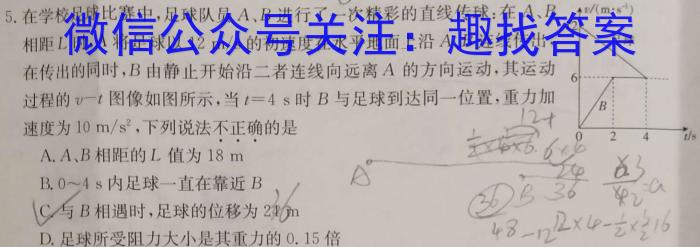 5. 在学校足球比赛中,足球队员 A、B 进行了一次精彩的直线传球,在 A、B
相距 L 12 m 的初速度在水平地面上沿 A
微信公众号关注：趣找答案
在传出的同时,B 由静止开始沿二者连线向远离 A 的方向运动,其运动
过程的 v—t 图像如图所示,当 t=4 s 时 B 与足球到达同一位置,重力加
速度为 10 m/s²,下列说法不正确的是
A. A、B 相距的 L 值为 18 m
B. 0~4 s 内足球一直在靠近 B
C. 与 B 相遇时,足球的位移为 2 m
D. 足球所受阻力大小是其重力的 0.15 倍
v/(m·s⁻¹)
6
B
0 2 4 t/s
12+
6×4
24
A
36
B 36